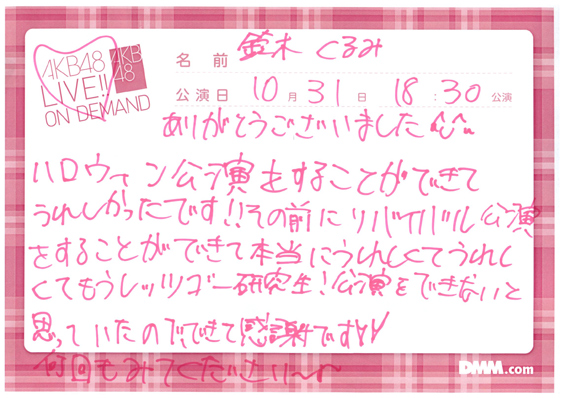 AKB48
LIVE!!
ON DEMAND
AKB
48
名前 鈴木くるみ
公演日 10月31日 18:30公演
ありがとうございました
ハロウィン公演をすることができて
うれしかったです!!その前にリバイバル公演
をすることができて本当にうれしくてうれし
くてもうレッツゴー研究生!公演をできないと
思っていたのでできて感謝です
何回もみてください〜
DMM.com